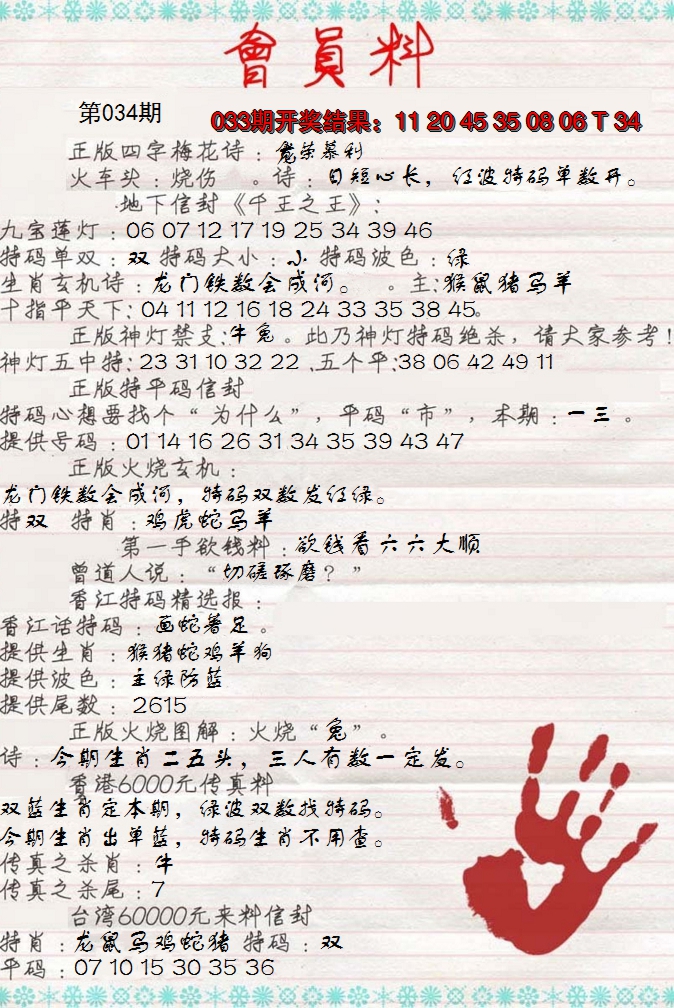 會員料
第034期
033期开奖结果：11 20 45 35 08 06 T 34
正版四字梅花诗：荣慕利
火车头：烧伤 。诗：日短心长，红波特码单数开。
地下信封《千王之王》：
九宝莲灯：06 07 12 17 19 25 34 39 46
特码单双：双 特码大小：小 特码波色：绿
生肖玄机诗：龙门铁数会成河。 。主：猴鼠猪马羊
十指平天下：04 11 12 16 18 24 33 35 38 45。
正版神灯禁支：牛兔。此乃神灯特码绝杀，请大家参考！
神灯五中特：23 31 10 32 22 、五个平：38 06 42 49 11
正版特平码信封
特码心想要找个“为什么”，平码“市”，本期：一三。
提供号码：01 14 16 26 31 34 35 39 43 47
正版火烧玄机：
龙门铁数会成河，特码双数发红绿。
特双 特肖：鸡虎蛇马羊
第一手欲钱料：欲钱看六六大顺
曾道人说：“切磋琢磨？”
香江特码精选报：
香江话特码：画蛇著足。
提供生肖：猴猪蛇鸡羊狗
提供波色：主绿防蓝
提供尾数：2615
正版火烧图解：火烧“兔”。
诗：今期生肖二五头，三人有数一定发。
香港6000元传真料
双蓝生肖定本期，绿波双数找特码。
今期生肖出单蓝，特码生肖不用查。
传真之杀肖：牛
传真之杀尾：7
台湾60000元来料信封
特肖：龙鼠马鸡蛇猪 特码：双
平码：07 10 15 30 35 36